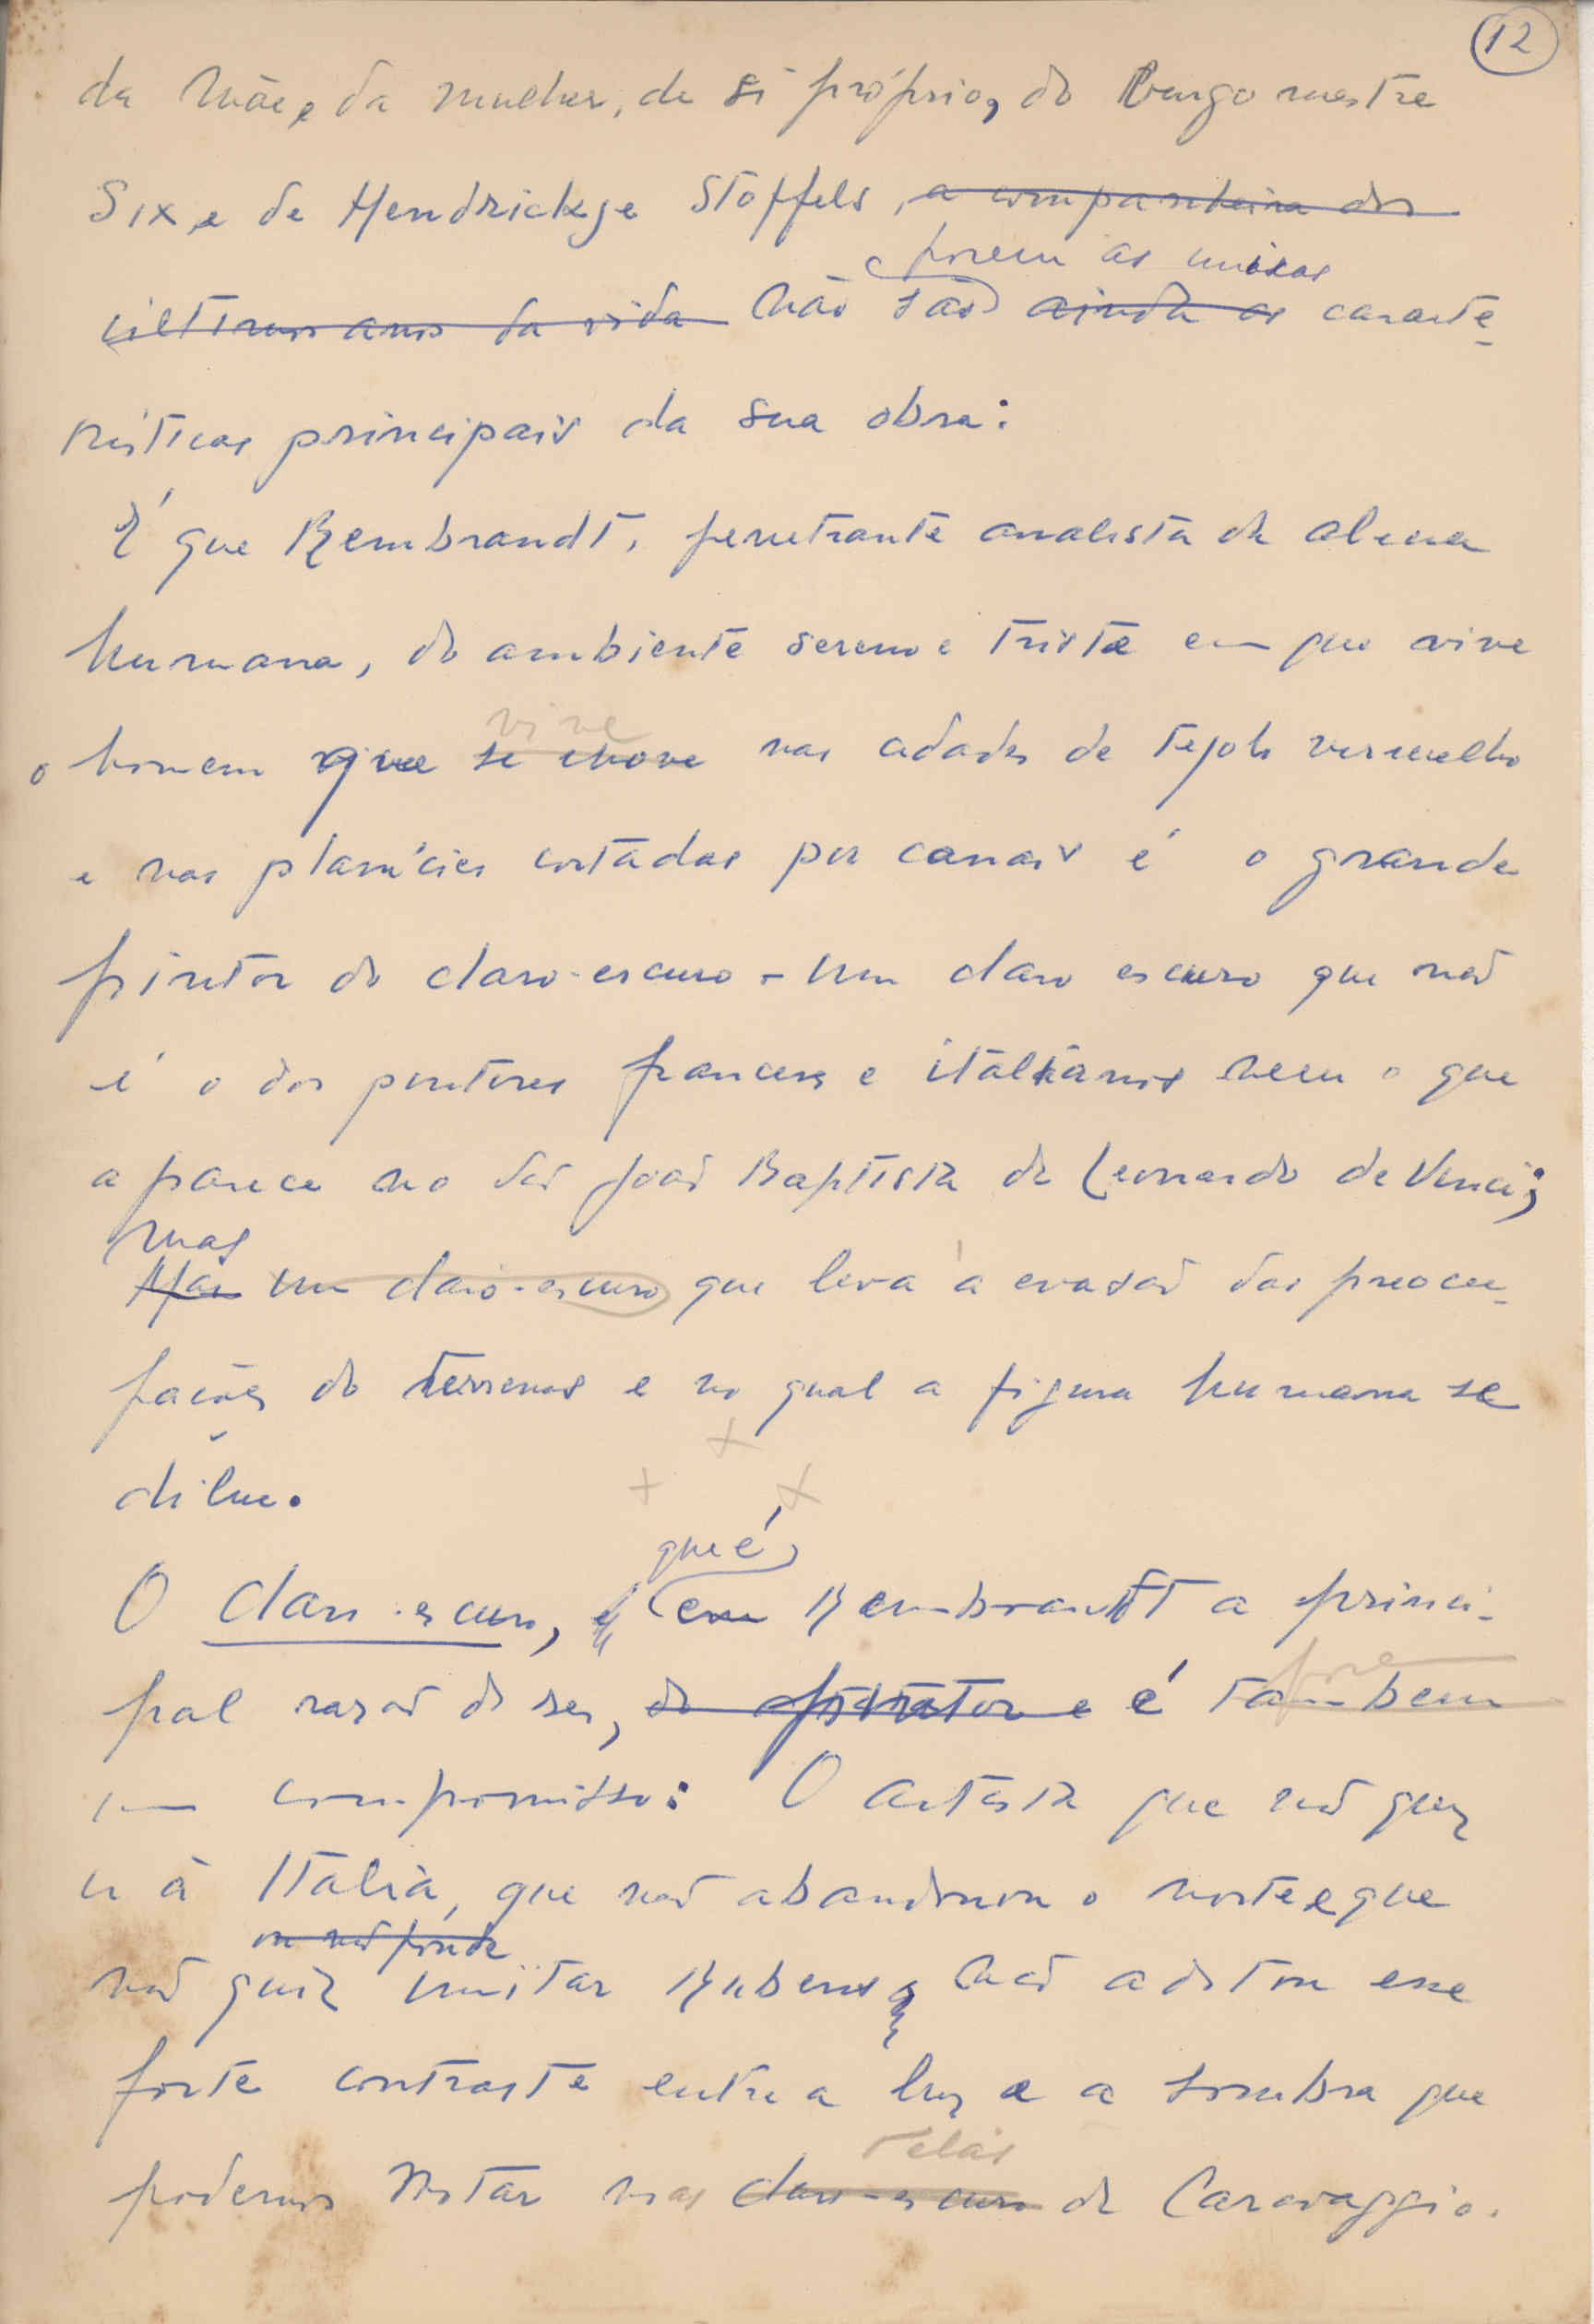 12
da Mãe, da mulher, de si próprio, do Burgo mestre
Six, e de Hendrickje Stoffels, a companheira dos
porem as unicas
ultimos anos da vida não são ainda as caracte-
rísticas principais da sua obra:
É que Rembrandt, penetrante analista da alma
humana, do ambiente sereno e triste em que vive
vive
o homem que se move nas cidades de tejolo vermelho
e nas planícies cortadas por canais é o grande
pintor do claro-escuro - um claro escuro que não
é o dos pintores franceses e italianos nem o que
aparece no São João Baptista de Leonardo de Vinci;
mas
Mas um claro-escuro que leva à evasão das preocu-
pações do terrenos e no qual a figura humana se
dilue.
que é,
O claro-escuro, é em Rembrandt a princi-
pal razão de ser, do pintor e é tambem
um compromisso: O artista que não quiz
ir à Italia, que não abandonou o norte e que
ou não poude
não quiz imitar Rubens, não adoptou esse
forte contraste entre a luz e a sombra que
telas
podemos notar nas claro-escuro de Caravaggio.